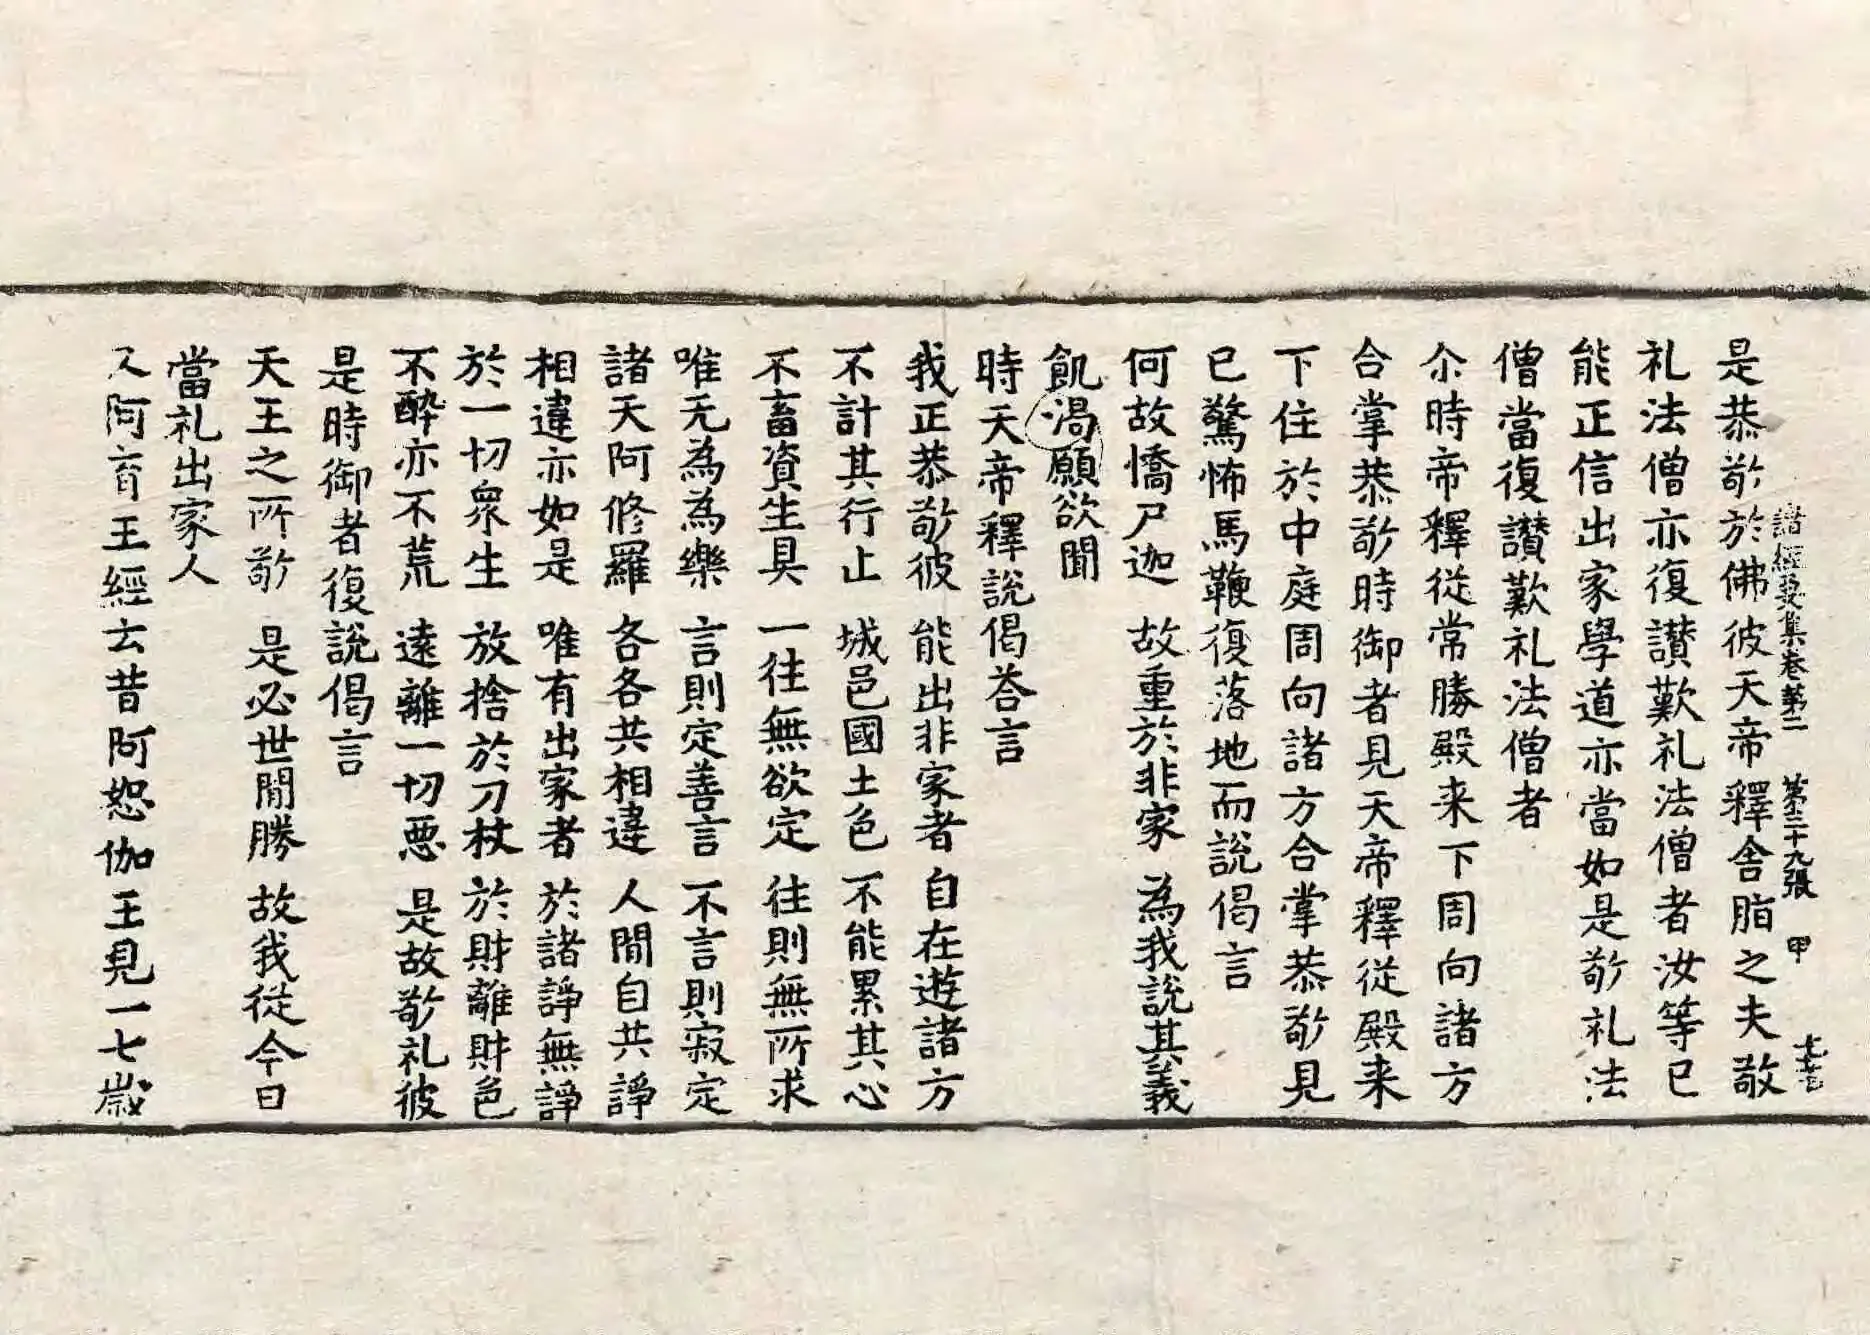 諸經要集卷第二 第三十九張 甲
是恭敬於佛彼天帝釋舍脂之夫敬
礼法僧亦復讃歎礼法僧者汝等已
能正信出家學道亦當如是敬礼法
僧當復讃歎礼法僧者
尒時帝釋從常勝殿来下周向諸方
合掌恭敬時御者見天帝釋從殿来
下住於中庭周向諸方合掌恭敬見
已驚怖馬鞭復落地而說偈言
何故憍尸迦 故重於非家 為我說其義
飢渴願欲聞
時天帝釋說偈荅言
我正恭敬彼 能出非家者 自在遊諸方
不計其行止 城邑國土色 不能累其心
不畜資生具 一往無欲定 往則無所求
唯无為為樂 言則定善言 不言則寂定
諸天阿修羅 各各共相違 人間自共諍
相違亦如是 唯有出家者 於諸諍無諍
於一切衆生 放捨於刀杖 於財離財色
不醉亦不荒 遠離一切惡 是故敬礼彼
是時御者復說偈言
天王之所敬 是必世間勝 故我従今日
當礼出家人
又阿育王經云昔阿恕伽王見一七歲